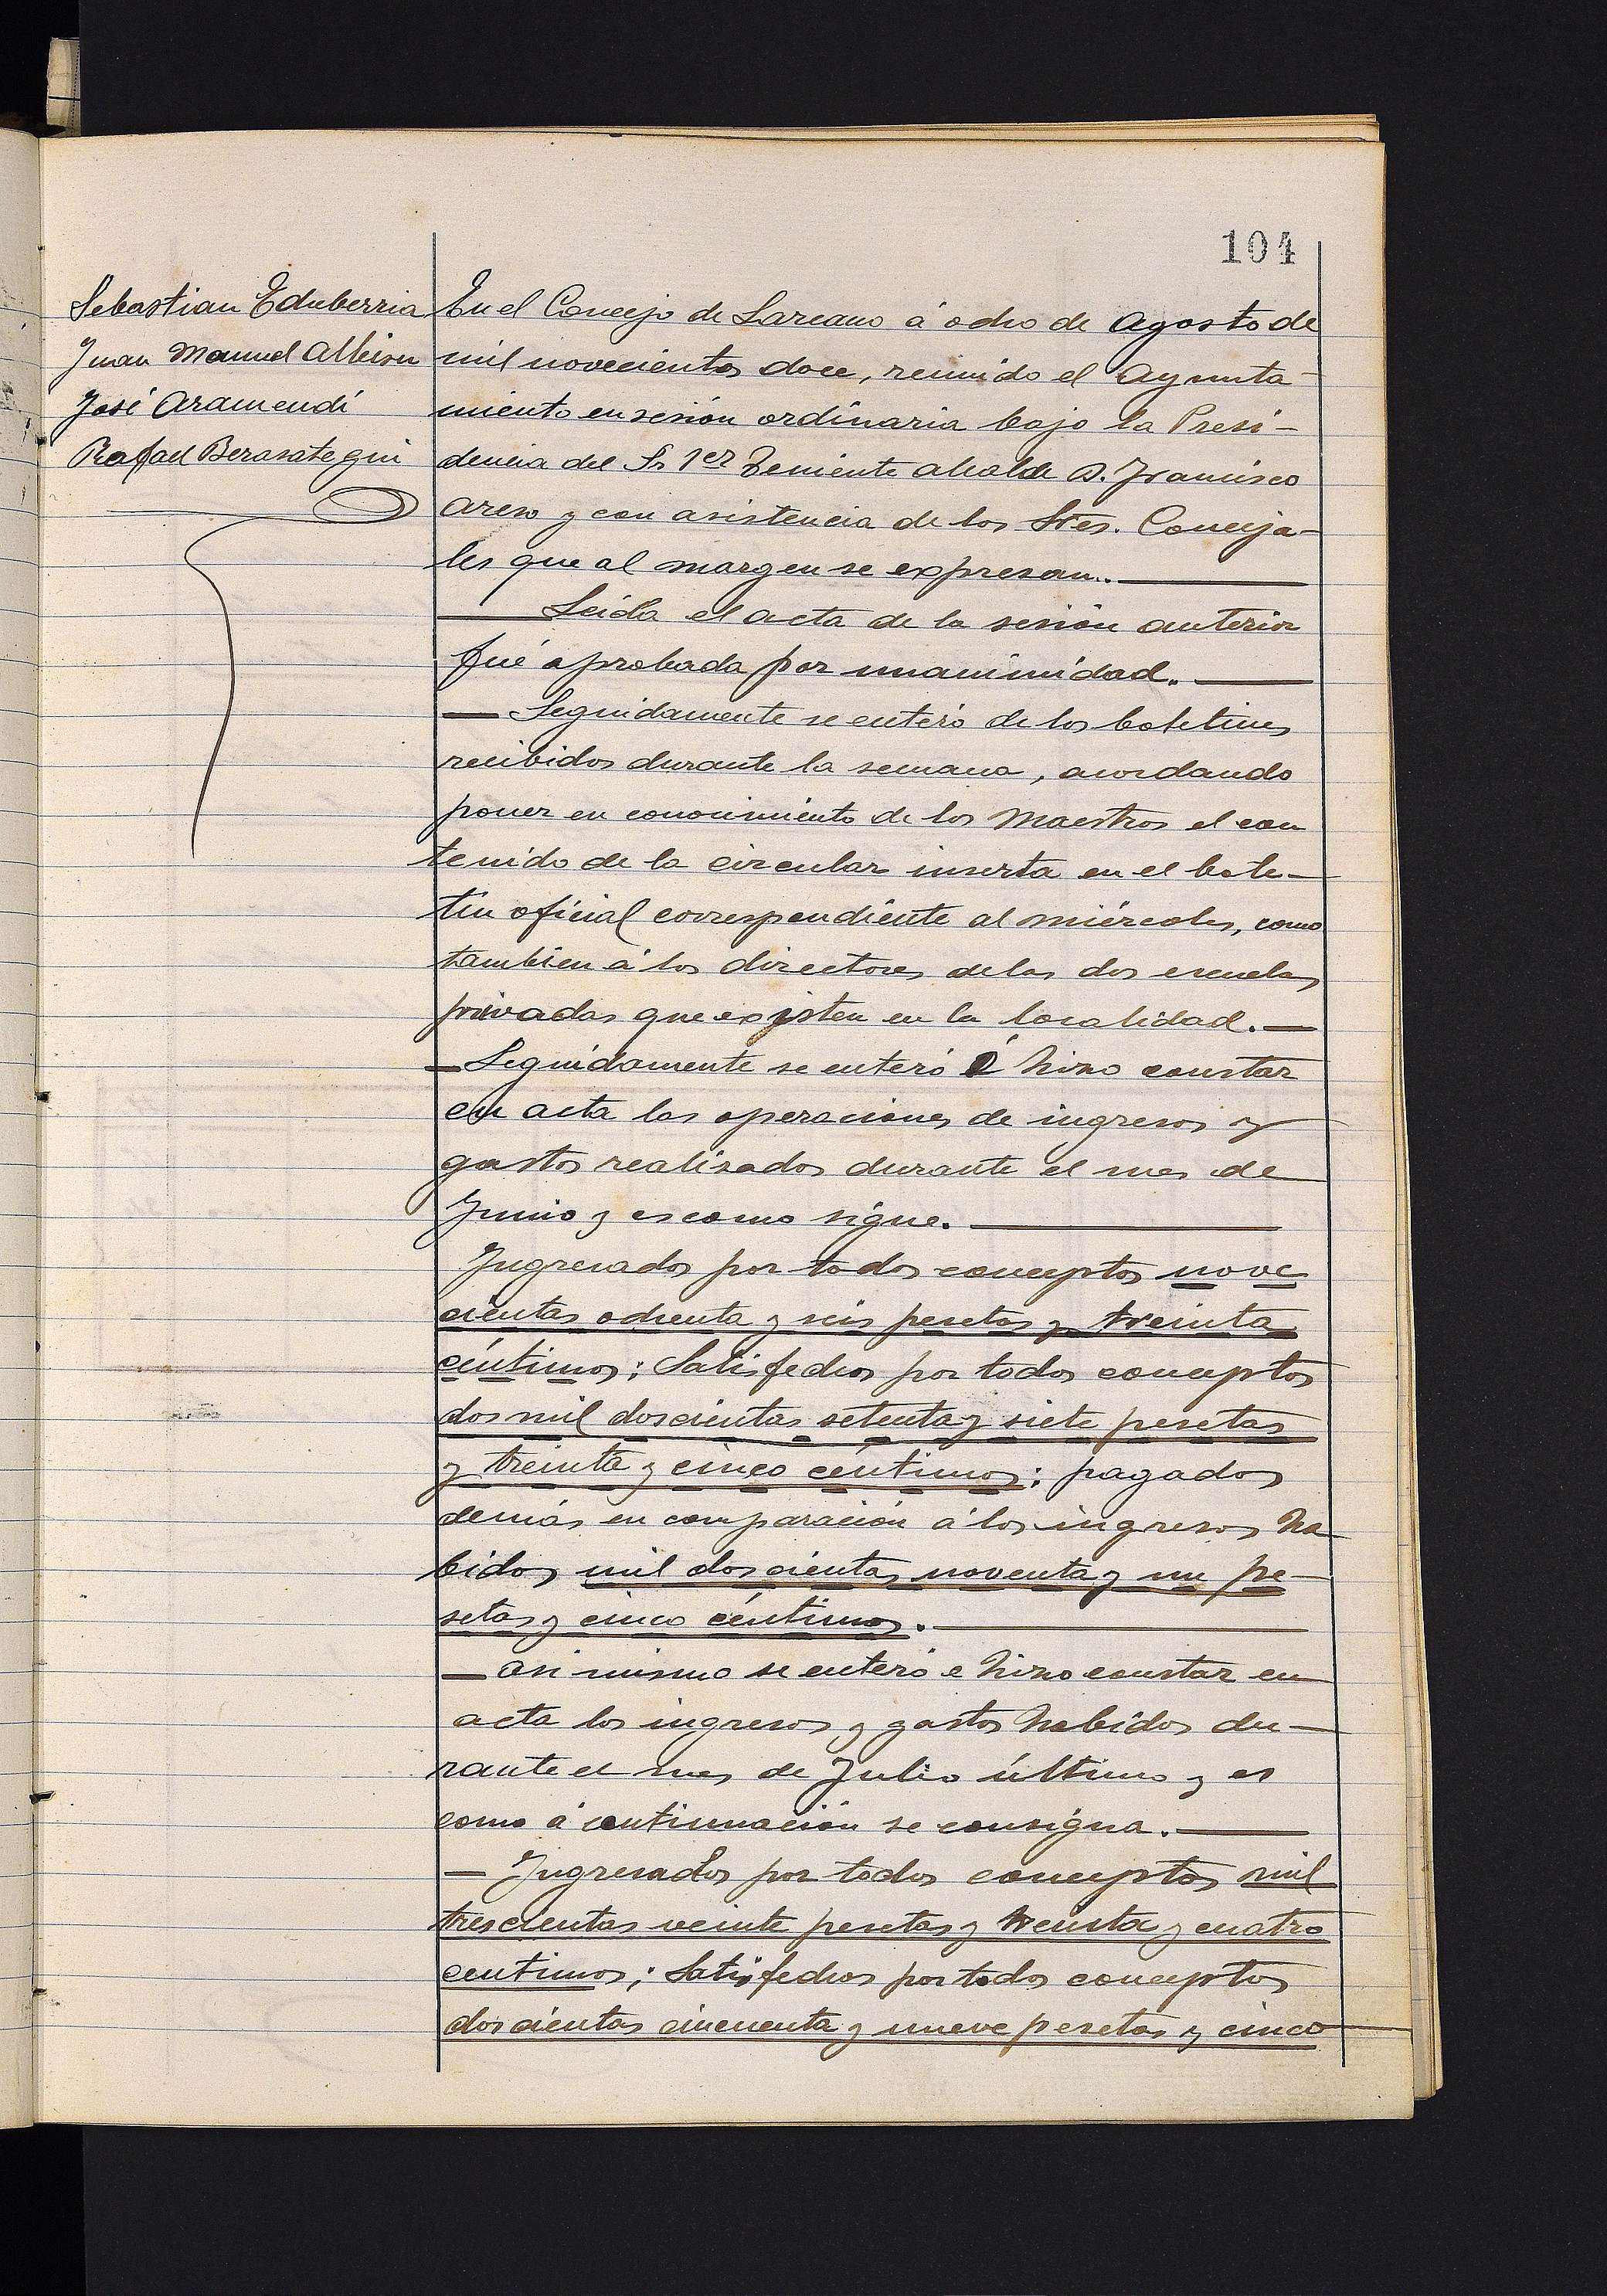 104
Sebastian Echeberria
Juan Manuel Albisu
José Aramendi
Rafael Berasategui
En el Concejo de Lazcano á ocho de Agosto de
mil novecientos doce, reunido el Ayunta-
miento en sesión ordinaria bajo la Presi-
dencia del Sr 1er Teniente alcalde D. Francisco
Areso y con asistencia de los Sres. Conceja-
les que al margen se expresan.
Leida el acta de la sesión anterior
fué aprobada por unanimidad.
Seguidamente se enteró de los boletines
recibidos durante la semana, acordando
poner en conocimiento de los Maestros el con
tenido de la circular inserta en el bole-
tin oficial correspondiente al miércoles, como
tambien á los directores de las dos escuelas
privadas que existen en la localidad.
Seguidamente se enteró é hizo constar
en acta las operaciones de ingresos y
gastos realizados durante el mes de
Junio y es como sigue.
Ingresados por todos conceptos nove
cientas ochenta y seis pesetas y treinta
céntimos; Satisfechos por todos conceptos
dos mil doscientas setenta y siete pesetas
y treinta y cinco céntimos; pagados
demás en comparación á los ingresos ha
bidos mil doscientas noventa y un pe-
setas y cinco céntimos.
Asi mismo se enteró e hizo constar en
acta los ingresos y gastos habidos du-
rante el mes de Julio último y es
como á continuación se consigna.
Ingresados por todos conceptos mil
trescientas veinte pesetas y treinta y cuatro
centimos; Satisfechos por todos conceptos
doscientas cincuenta y nueve pesetas y cinco